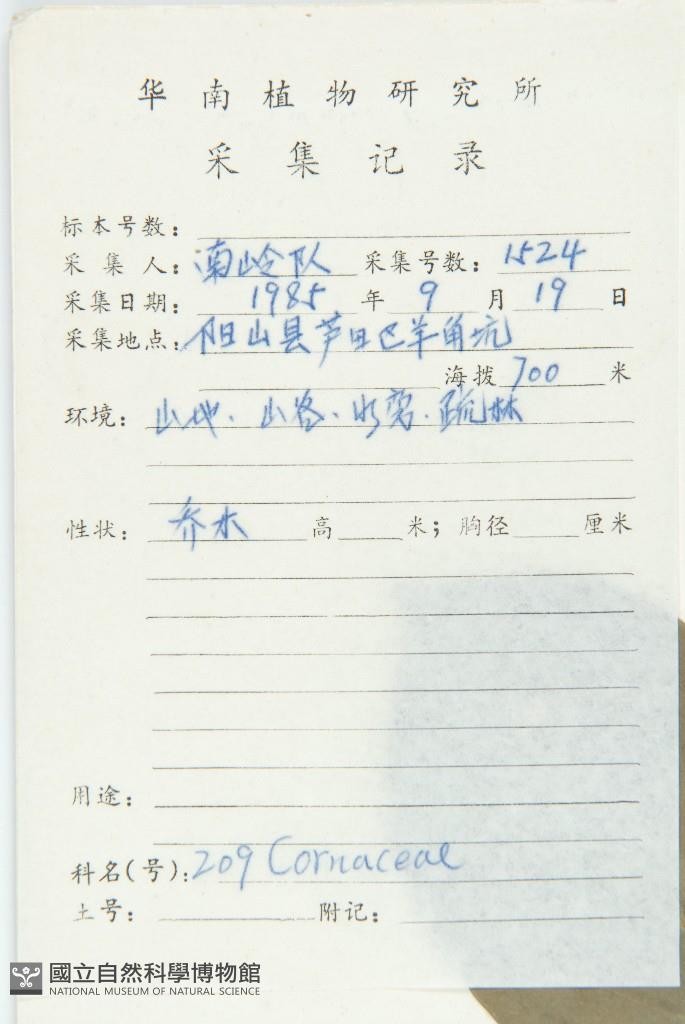 华南植物研究所
采集记录
标本号数:
采集人: 南岭队 采集号数: 1524
采集日期: 1985 年 9 月 19 日
采集地点: 阳山县芦田巴羊角坑
海拨 700 米
环境: 山地. 山谷. 水旁. 疏林
性状: 乔木 高 米; 胸径 厘米
用途:
科名(号): 209 Cornaceae
土号: 附记:
國立自然科學博物館
NATIONAL MUSEUM OF NATURAL SCIENCE